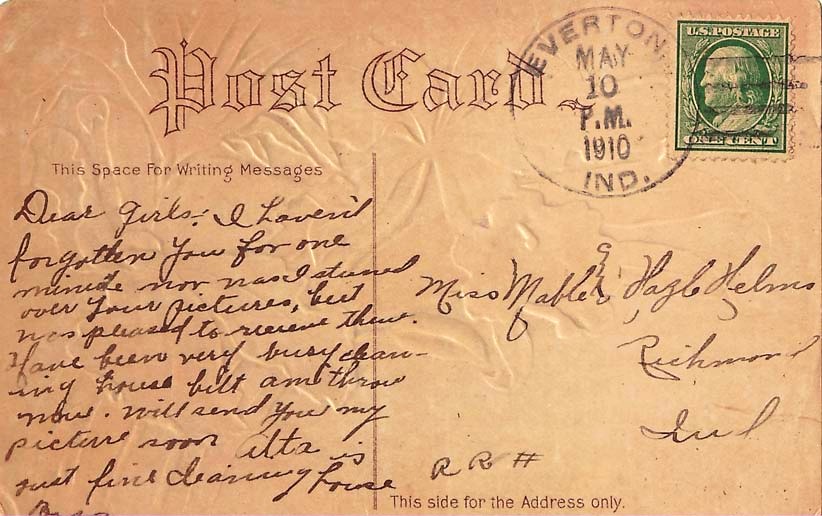 Post Card
EVERTON,
MAY
10
P.M.
1910
IND.
U.S. POSTAGE
ONE CENT
This Space For Writing Messages
Dear Girls: I haven't
forgotten you for one
minute nor was I stuned
over your pictures, but
was pleased to recieve them.
Have been very busy clean-
ing house but am throw
now. Will send you my
picture soon Alta is
just fine cleaning house
Miss Mable & Hazle Helms
Richmond
Ind
R R #
This side for the Address only.